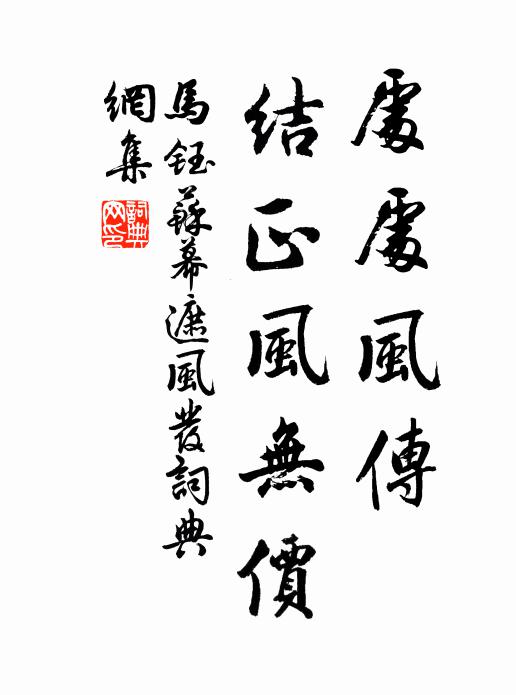 處處風傳
結正風無價
馬鈺蘇幕遮風發詞典
網集
詞典網印